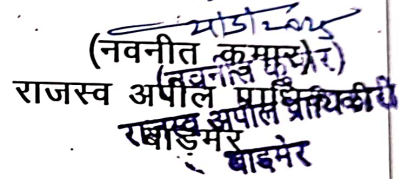 (नवनीत कुमार)
(नवनीत कुमार)
राजस्व अपील प्राधिकारी
राजस्व अपील प्राधिकारी
बाडमेर
बाड़मेर